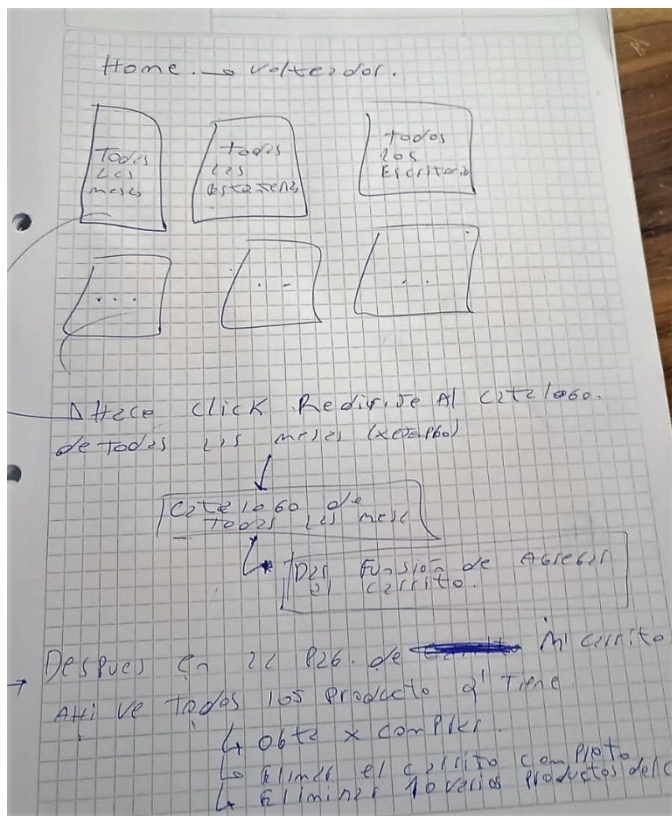 Home → volteador.
Todas
las
meses
Todas
las
estaterias
todos
los
Escritorio
...
. -
. .
Hace click Redirije Al catalogo.
de todas las meses (xejemplo)
Catalogo de
todas las mese
Dar Funsion de Agregar
al carrito.
→ Despues en la pag. de mi carrito
Ahi ve todos los producto q' tiene
↳ obta x complar.
↳ Elimar el carrito completo
↳ Eliminar 1 o varios productos del c